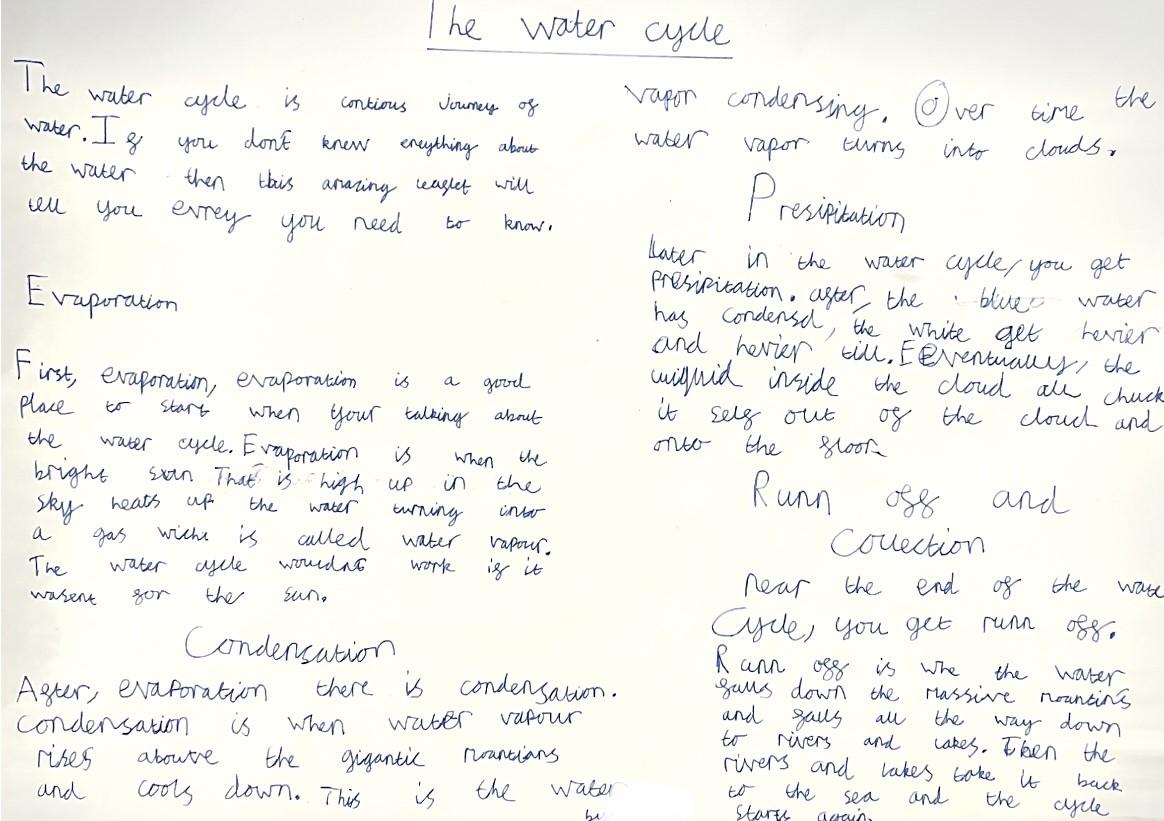 The water cycle
The water cycle is contious Journey of
water. If you dont knew eneything about
the water then this amazing leaflet will
tell you evrey you need to know.
Evaporation
First, evaporation, evaporation is a good
place to start when your talking about
the water cycle. Evaporation is when the
bright sun That is high up in the
sky heats up the water turning into
a gas wich is called water vapour.
The water cycle wouldnt work if it
wasent for the sun.
Condensation
After, evaporation there is condensation.
Condensation is when water vapour
rises above the gigantic moantians
and cools down. This is the water
vapor condensing. Over time the
water vapor turns into clouds.
Presipitation
Later in the water cycle, you get
presipitation. after, the blue water
has condensd, the white get hevier
and hevier till. Eventually, the
liquid inside the cloud all chuck
it self out of the cloud and
onto the floor
Runn off and
Collection
near the end of the wate
Cycle, you get runn off.
Runn off is whe the water
falls down the massive moantins
and falls all the way down
to rivers and lakes. Then the
rivers and lakes take it back
to the sea and the cycle
starts again.